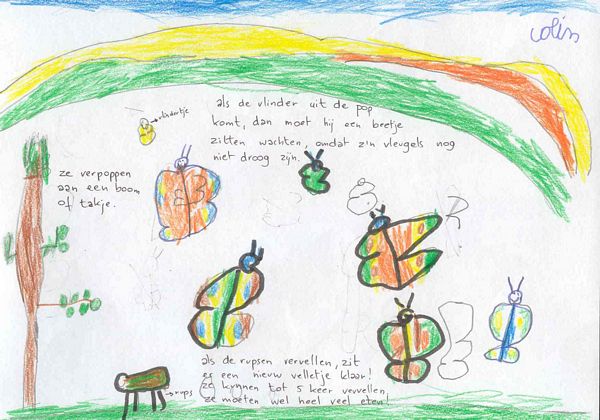 colin
vlindertje
als de vlinder uit de pop
komt, dan moet hij een beetje
zitten wachten, omdat z'n vleugels nog
niet droog zijn.
ze verpoppen
aan een boom
of takje.
als de rupsen vervellen, zit
er een nieuw velletje klaar!
ze kunnen tot 5 keer vervellen,
ze moeten wel heel veel eten!
rups